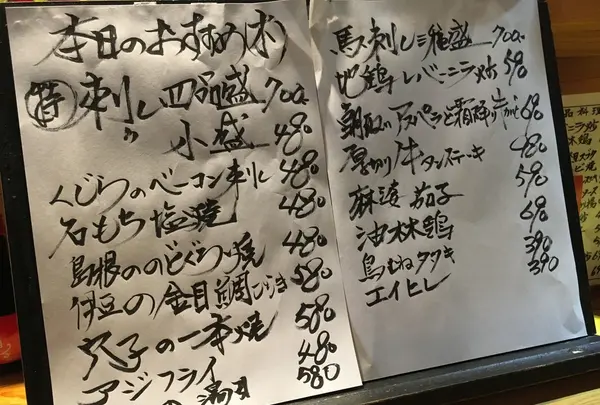 本日のおすすめ(木)
特 刺し四品盛 700.
〃 小盛 480
くじらのベーコン刺し 480
石もち塩焼 480
島根ののどぐろ焼 480
伊豆の金目鯛ひらき 580
穴子の一本焼 580
アジフライ 480
580
馬刺し三種盛 700.
地鶏レバニラ炒 590
朝取りアスパラと霜降り 690
厚切り牛タンステーキ 480
麻婆茄子 590
油林鶏 690
鳥むねタタキ 390
エイヒレ 390